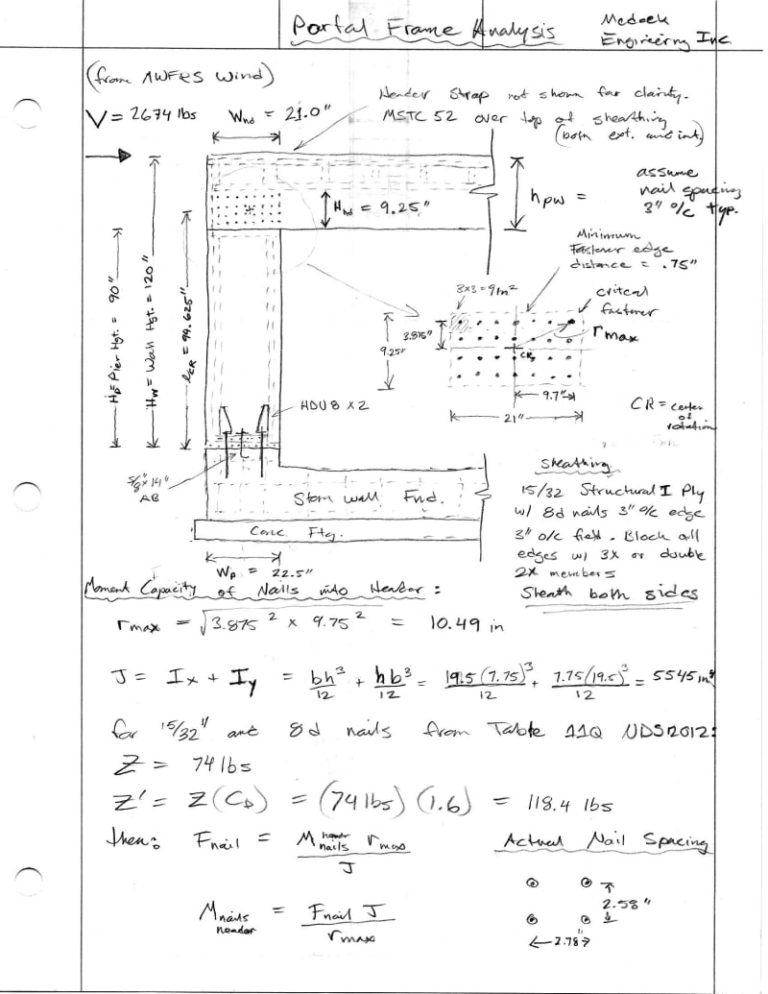 Portal Frame Analysis
Medeek
Engineering Inc.
(from MWFRS Wind)
V = 2674 lbs
Whd = 21.0"
Header Strap not shown for clarity.
MSTC 52 over top of sheathing
(both ext. and int.)
assume
nail spacing
3" o/c typ.
hpw =
Hhd = 9.25"
Minimum
Fastener edge
distance = .75"
3x3 = 9 in²
critcal
fastener
rmax
3.875"
9.25"
CR
9.7"
21"
CR = center
of
rotation
Hp = Pier Hgt. = 90"
Hw = Wall Hgt. = 120"
lCR = 94.625"
HDU8 x 2
5/8" x 14"
AB
Stem wall Fnd.
Conc Ftg.
Wp = 22.5"
Sheathing
15/32 Structural I Ply
w/ 8d nails 3" o/c edge
3" o/c field. Block all
edges w/ 3x or double
2x members
Sheath both sides
Moment Capacity of Nails into Header:
rmax = √3.875² x 9.75² = 10.49 in
J = Ix + Iy = bh³/12 + hb³/12 = 19.5(7.75)³/12 + 7.75(19.5)³/12 = 5545 in⁴
for 15/32" and 8d nails from Table 11Q NDS 2012:
Z = 74 lbs
Z' = Z(CD) = (74 lbs)(1.6) = 118.4 lbs
then: Fnail = Mnails header rmax / J
Actual Nail Spacing
2.58"
2.78"
Mnails header = Fnail J / rmax